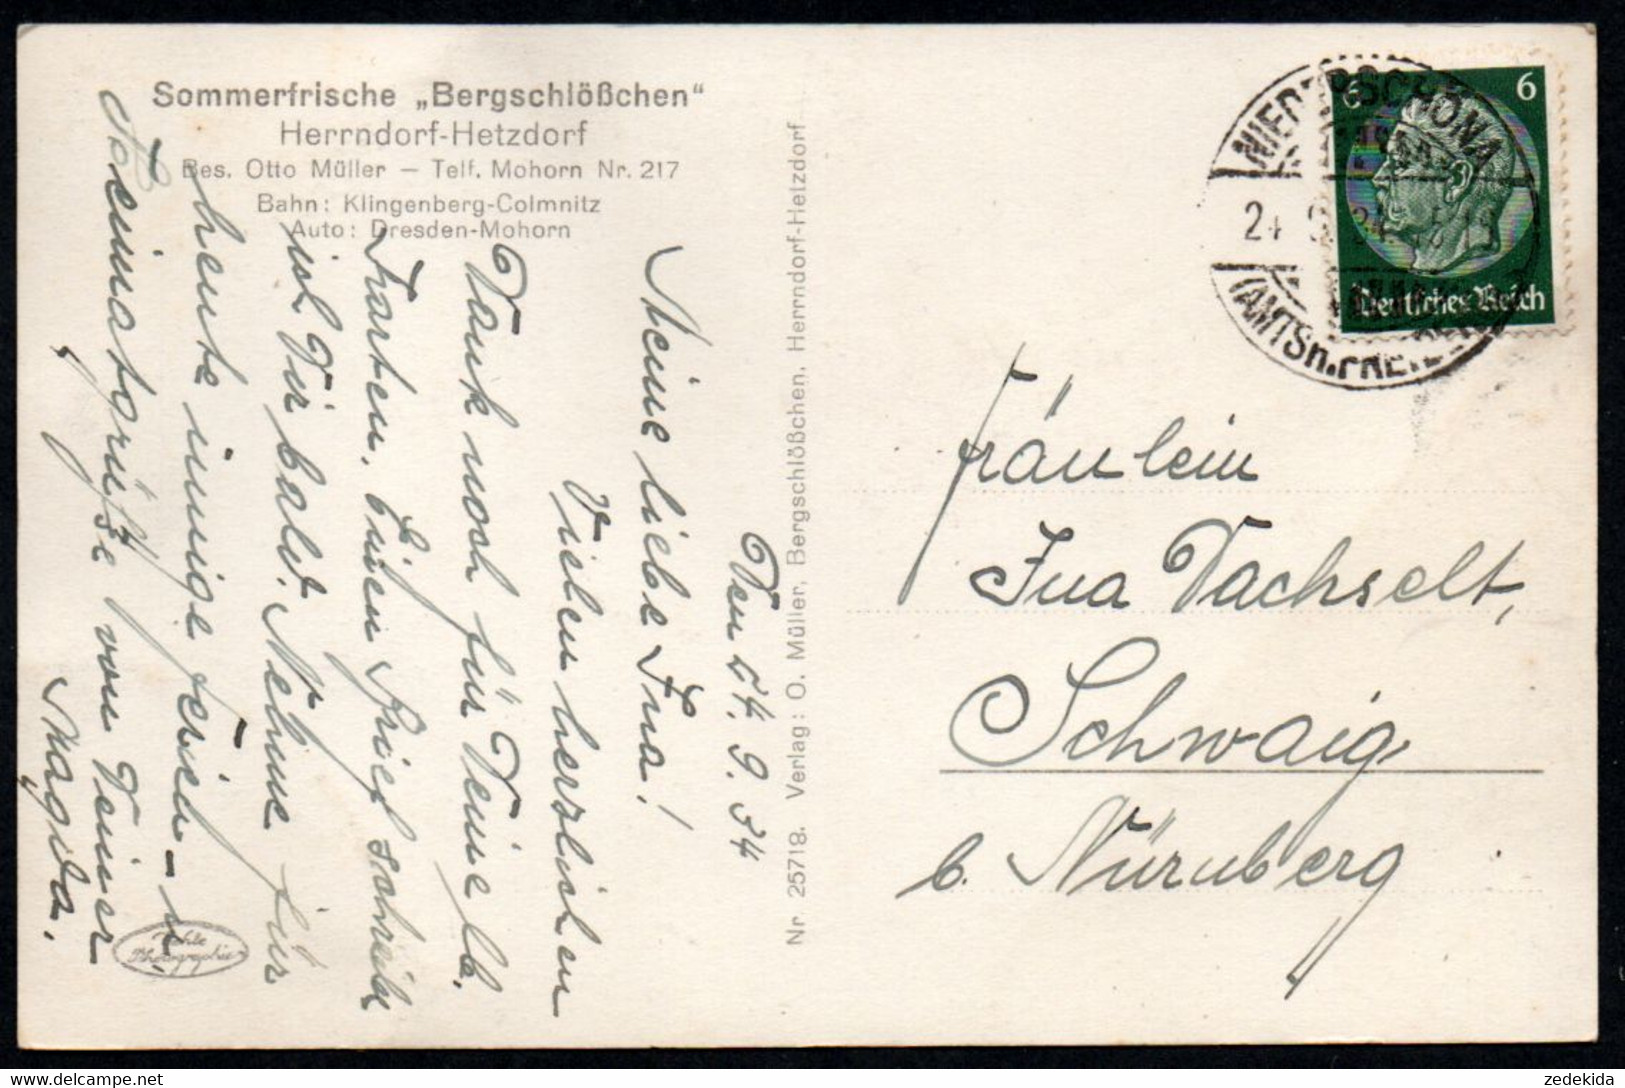 Sommerfrische „Bergschlößchen"
Herrndorf-Hetzdorf
Bes. Otto Müller — Telf. Mohorn Nr. 217
Bahn: Klingenberg-Colmnitz
Auto: Dresden-Mohorn
Den 24. 9. 34
Meine liebe Ina!
Vielen herzlichen
Dank noch für Deine lb.
Karten. Einen Brief schreibe
ich Dir bald. Nehme für
heute innige Ferien- u.
Heimatgrüße von Deiner
Magda.
Echte
Photographie
Nr. 25718. Verlag: O. Müller, Bergschlößchen, Herrndorf-Hetzdorf
NIEDERSCHÖNA
24 9. 34
(AMTSH.FREIBERG
6
6
Deutsches Reich
Fräulein
Ina Dachselt,
Schwaig
b. Nürnberg
zedekida